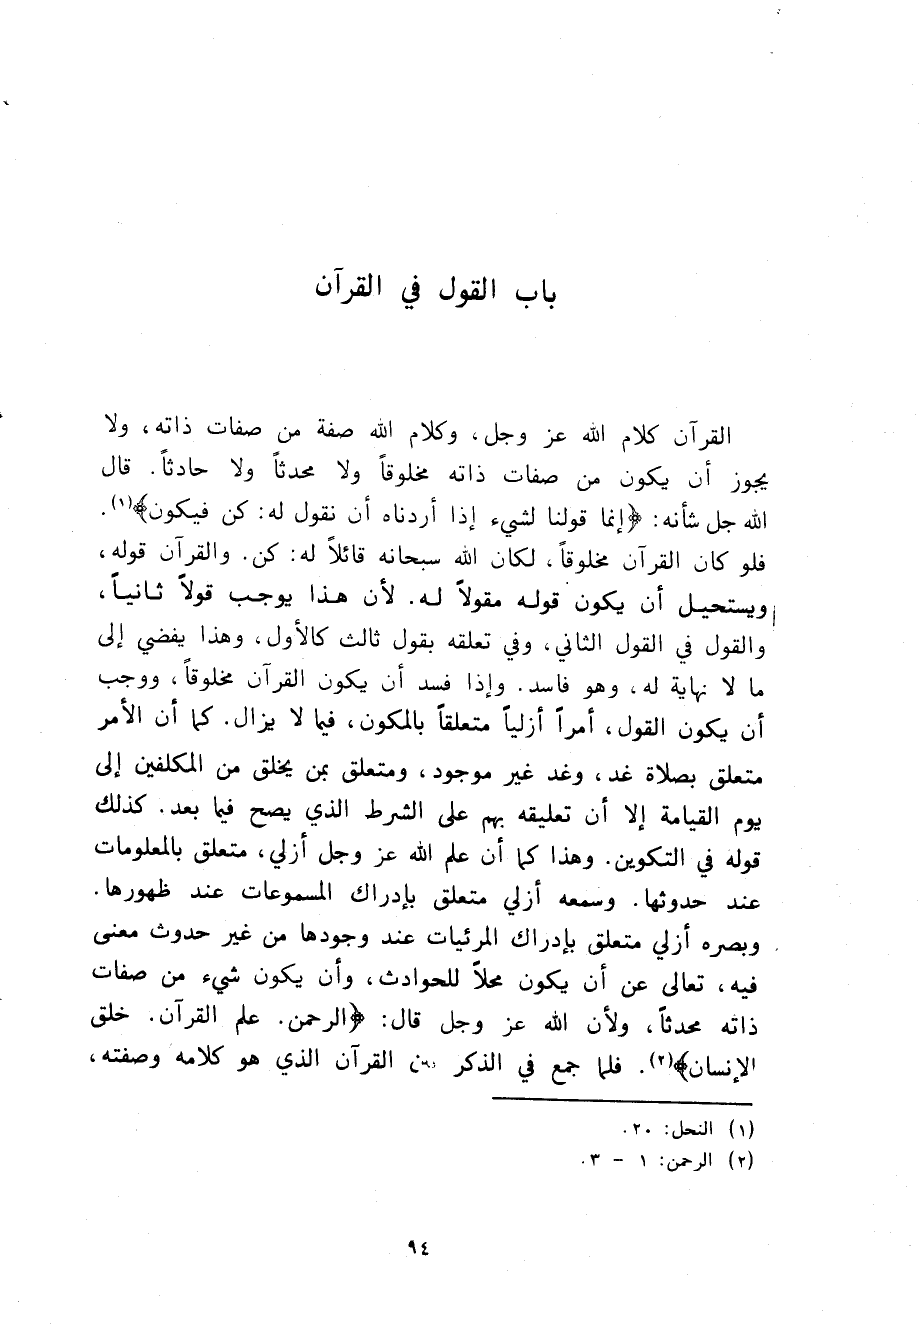 باب القول في القرآن
القرآن كلام الله عز وجل، وكلام الله صفة من صفات ذاته، ولا
يجوز أن يكون من صفات ذاته مخلوقاً ولا محدثاً ولا حادثاً. قال
الله جل شأنه: ﴿إنما قولنا لشيء إذا أردناه أن نقول له: كن فيكون﴾(١).
فلو كان القرآن مخلوقاً، لكان الله سبحانه قائلاً له: كن. والقرآن قوله،
ويستحيل أن يكون قوله مقولاً له. لأن هذا يوجب قولاً ثانياً،
والقول في القول الثاني، وفي تعلقه بقول ثالث كالأول، وهذا يفضي إلى
ما لا نهاية له، وهو فاسد. وإذا فسد أن يكون القرآن مخلوقاً، ووجب
أن يكون القول، أمراً أزلياً متعلقاً بالمكون، فيما لا يزال. كما أن الأمر
متعلق بصلاة غد، وغد غير موجود، ومتعلق بمن يخلق من المكلفين إلى
يوم القيامة إلا أن تعليقه بهم على الشرط الذي يصح فيما بعد. كذلك
قوله في التكوين. وهذا كما أن علم الله عز وجل أزلي، متعلق بالمعلومات
عند حدوثها. وسمعه أزلي متعلق بإدراك المسموعات عند ظهورها.
وبصره أزلي متعلق بإدراك المرئيات عند وجودها من غير حدوث معنى
فيه، تعالى عن أن يكون محلاً للحوادث، وأن يكون شيء من صفات
ذاته محدثاً، ولأن الله عز وجل قال: ﴿الرحمن. علم القرآن. خلق
الإنسان﴾(٢). فلما جمع في الذكر بين القرآن الذي هو كلامه وصفته،
(١) النحل: ٢٠.
(٢) الرحمن: ١ - ٣.
٩٤